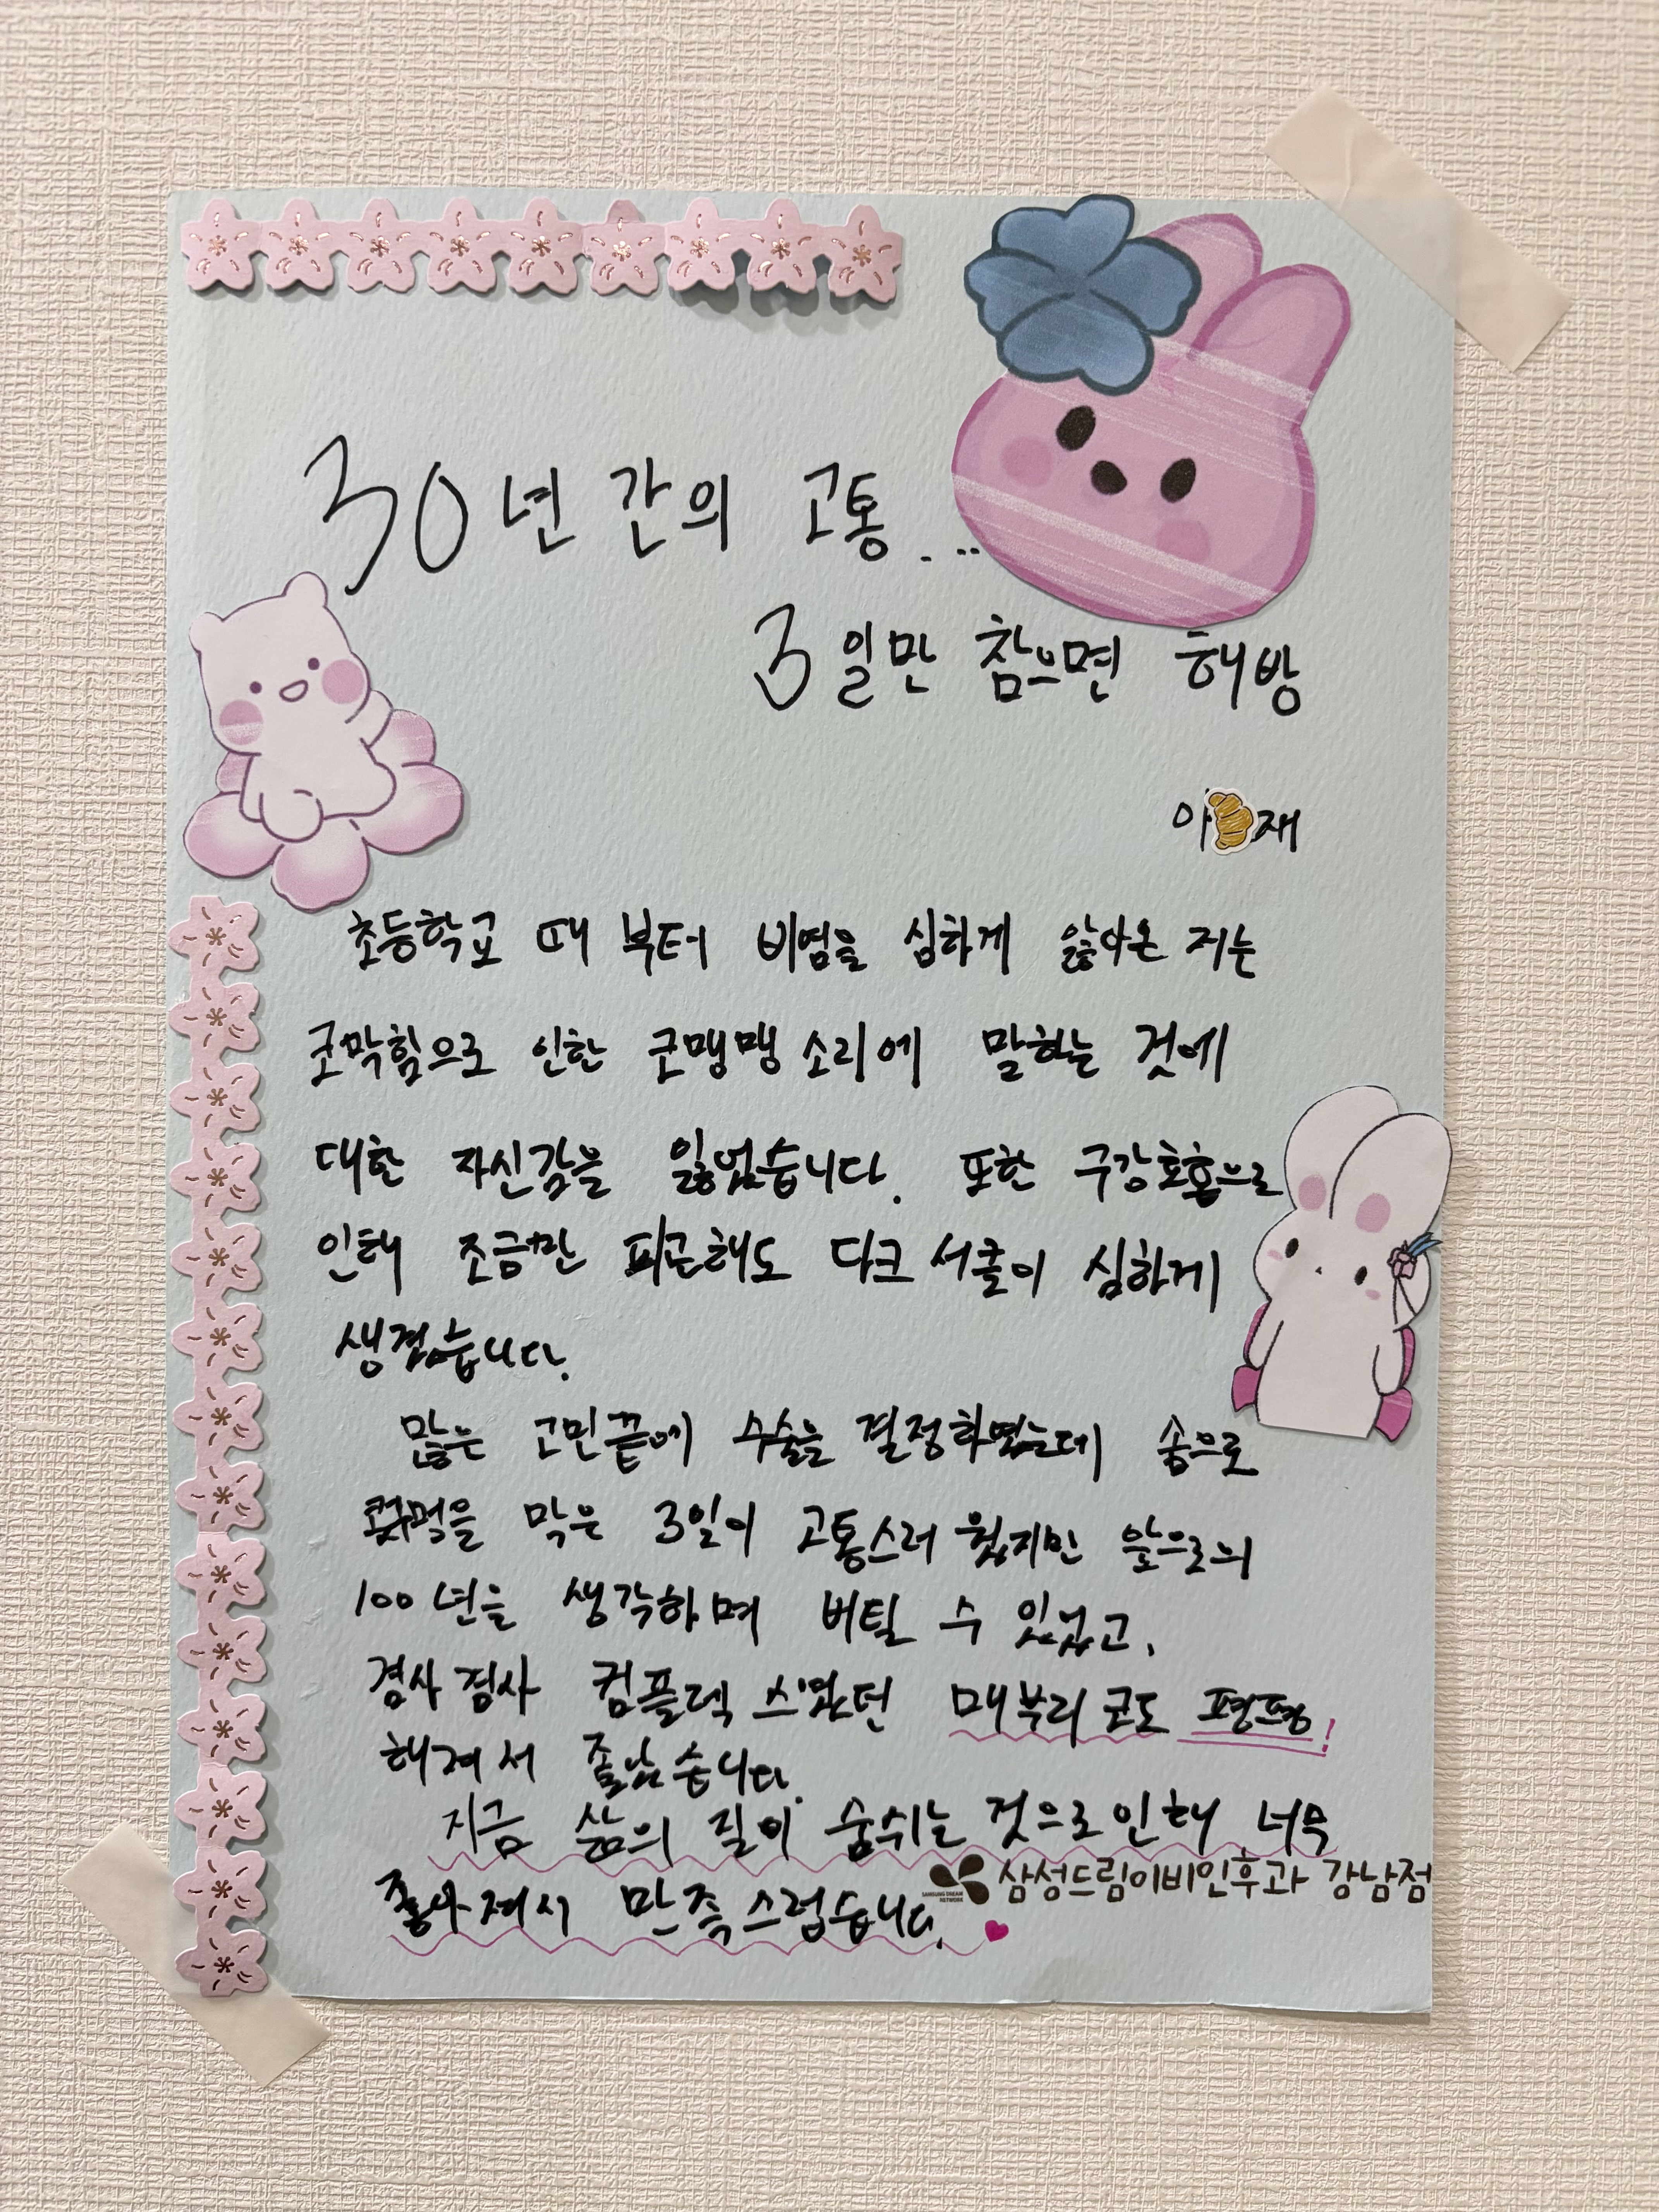 30년간의 고통...
3일만 참으면 해방
이 재
초등학교 때 부터 비염을 심하게 앓아온 저는
코막힘으로 인한 코맹맹 소리에 말하는 것에
대한 자신감을 잃었습니다. 또한 구강호흡으로
인해 조금만 피곤해도 다크서클이 심하게
생겼습니다.
많은 고민끝에 수술을 결정하였는데 솜으로
콧구멍을 막은 3일이 고통스러웠지만 앞으로의
100년을 생각하며 버틸 수 있었고,
겸사겸사 컴플렉스였던 매부리코도 평평!
해져서 좋았습니다.
지금 삶의 질이 숨쉬는 것으로인해 너무
좋아져서 만족스럽습니다.
SAMSUNG DREAM NETWORK 삼성드림이비인후과 강남점